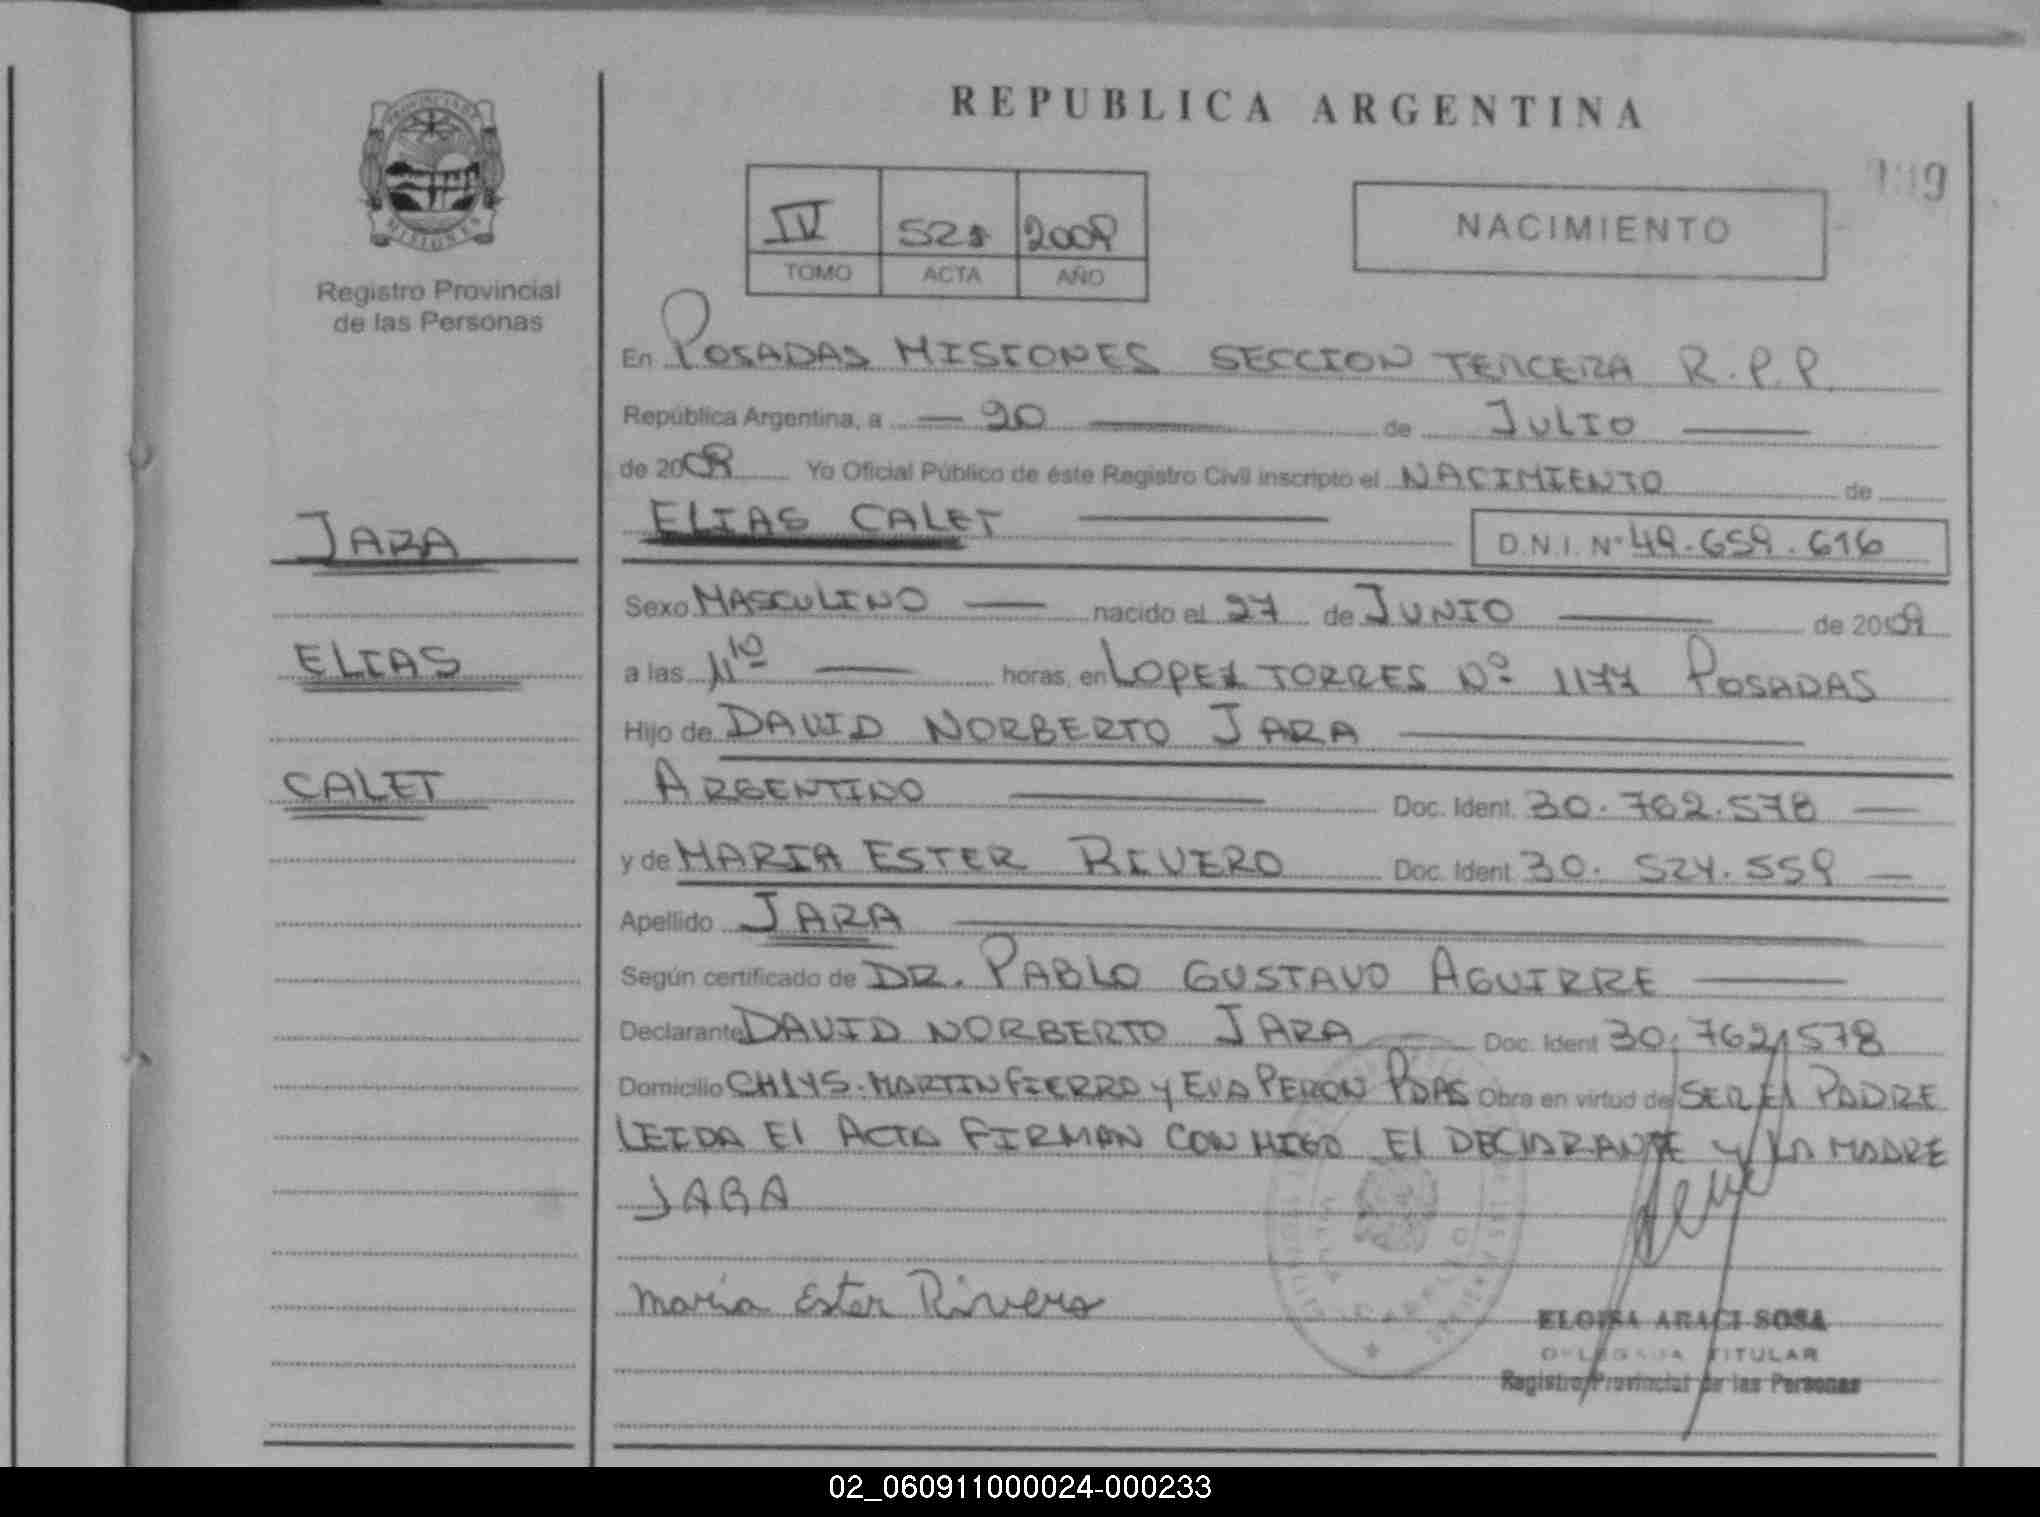 REPUBLICA ARGENTINA
PROVINCIA DE
MISIONES
Registro Provincial
de las Personas
IV 521 2009
TOMO ACTA AÑO
NACIMIENTO
En POSADAS MISIONES SECCION TERCERA R.P.P.
República Argentina, a — 20 — de JULIO —
de 2009 Yo Oficial Público de éste Registro Civil inscripto el NACIMIENTO de
ELIAS CALET — D.N.I. Nº 49.659.616
JARA
ELIAS
CALET
Sexo MASCULINO — nacido el 27 de JUNIO — de 2009
a las 11 10 — horas, en LOPEZ TORRES Nº 1177 POSADAS
Hijo de DAVID NORBERTO JARA —
ARGENTINO — Doc. Ident. 30.762.578 —
y de MARIA ESTER RIVERO Doc. Ident. 30.524.559 —
Apellido JARA —
Según certificado de DR. PABLO GUSTAVO AGUIRRE —
Declarante DAVID NORBERTO JARA — Doc. Ident 30.762.578
Domicilio CH 145. MARTIN FIERRO y EVA PERON PDAS Obra en virtud de SER El PADRE
LEIDA El ACTA FIRMAN CONMIGO El DECLARANTE y LA MADRE
JARA
María Ester Rivero
ELOISA ARACI SOSA
DELEGADA TITULAR
Registro Provincial de las Personas
02_060911000024-000233